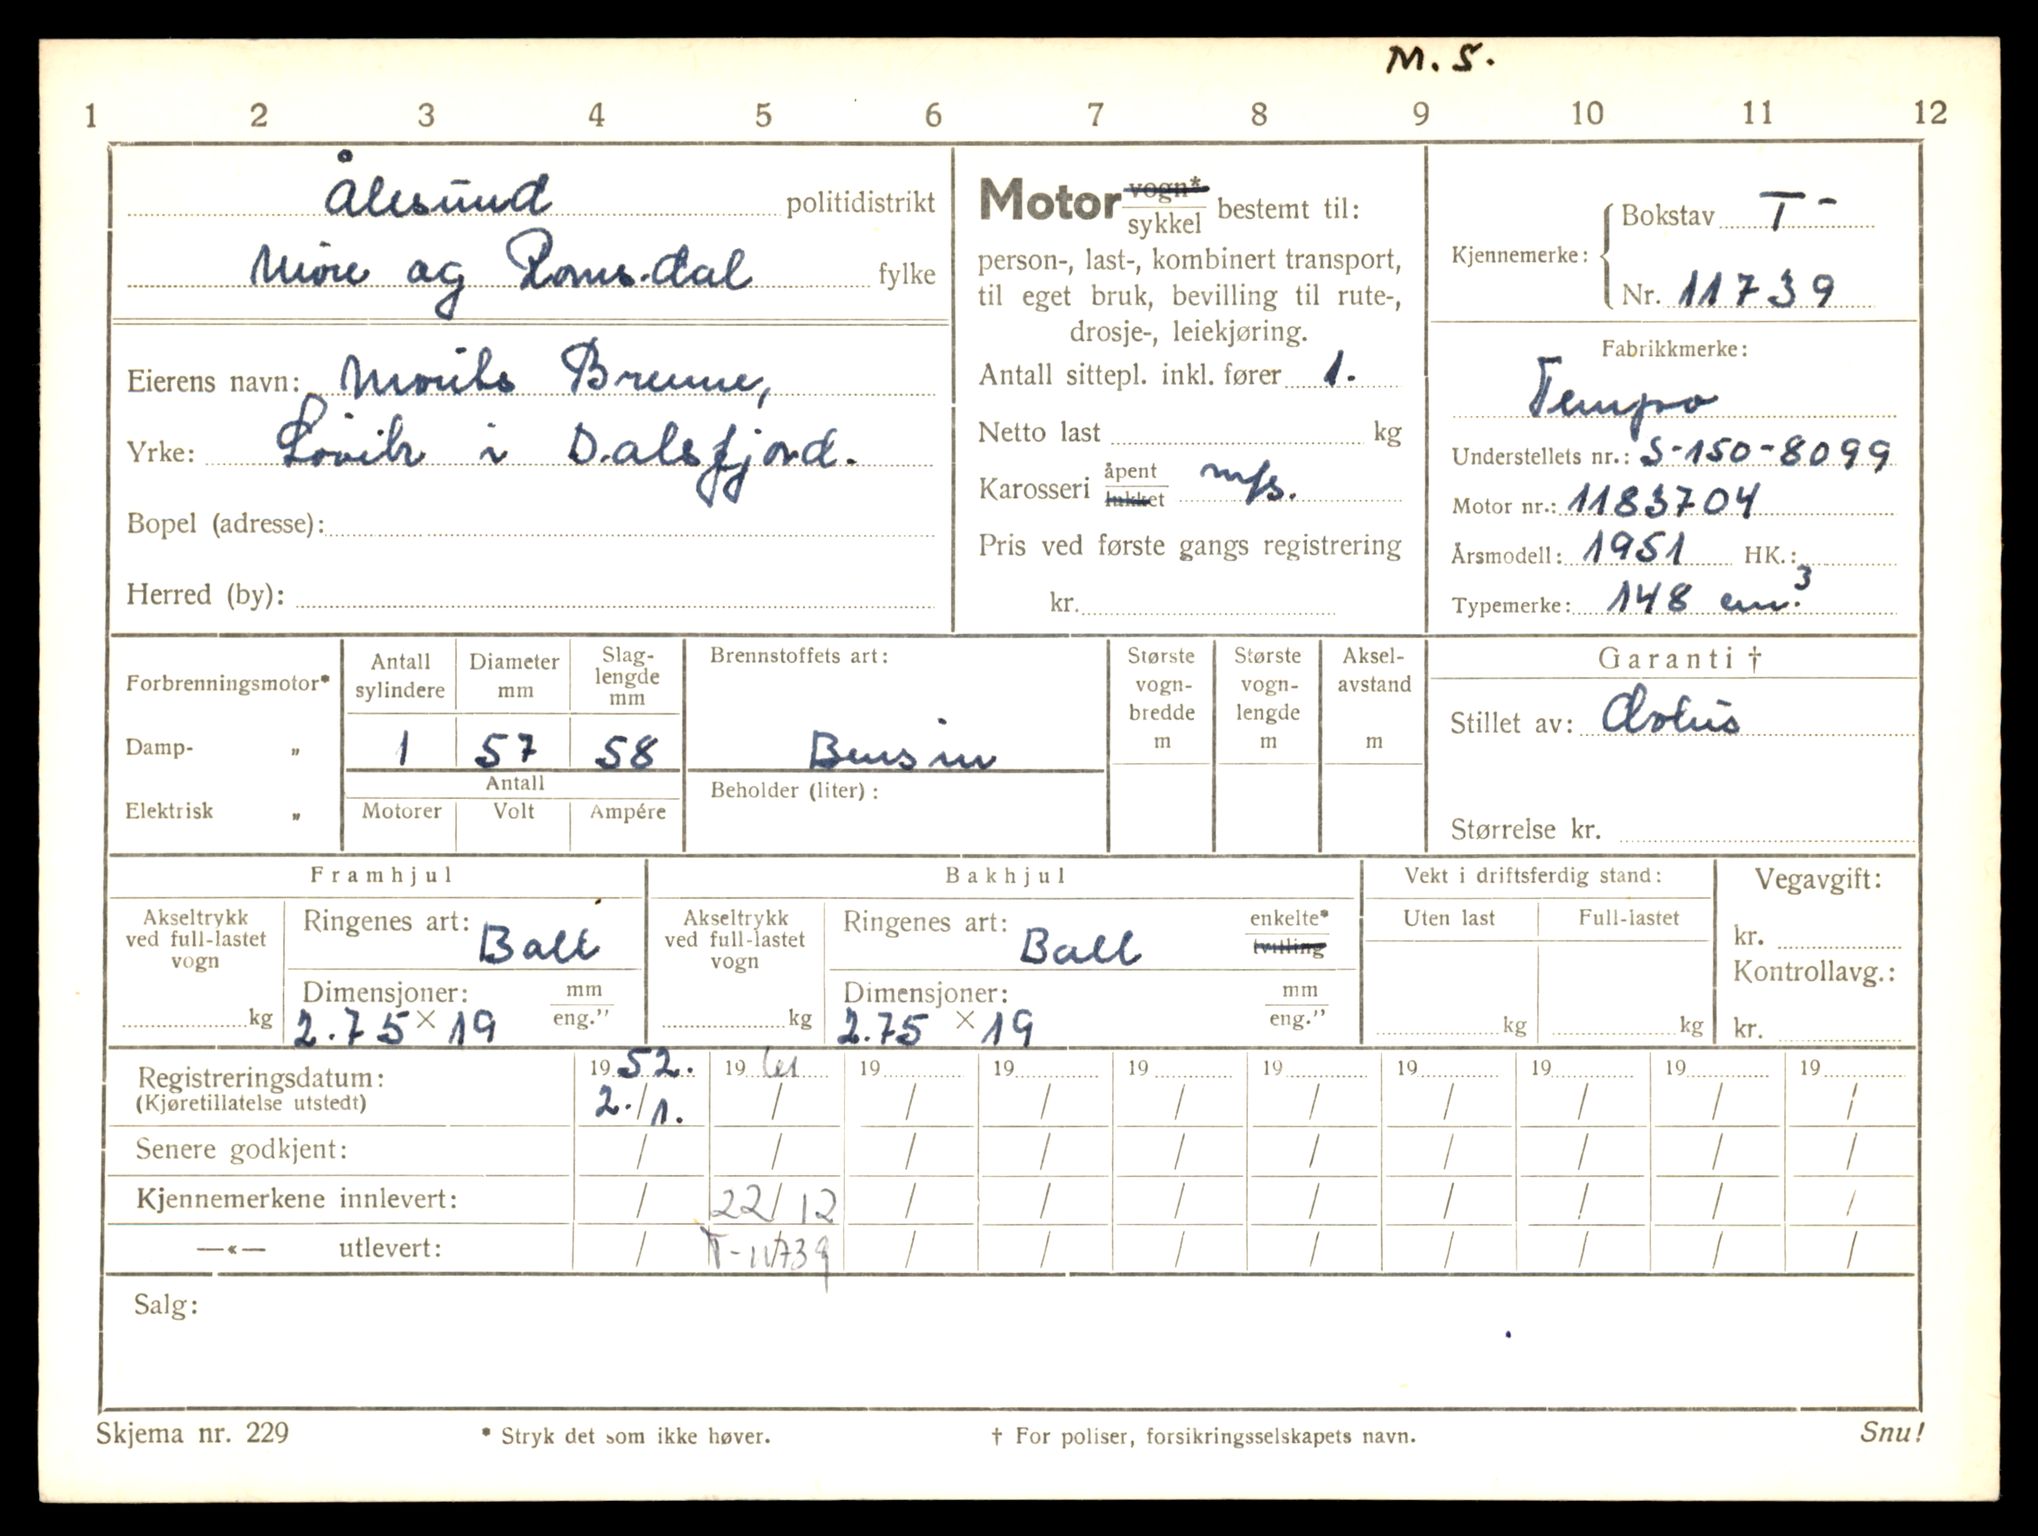 M. S.
1 2 3 4 5 6 7 8 9 10 11 12
Ålesund politidistrikt
Møre og Romsdal fylke
Eierens navn: Morits Brenne,
Yrke: Løvik i Dalsfjord.
Bopel (adresse):
Herred (by):
Motor vogn* sykkel bestemt til:
person-, last-, kombinert transport,
til eget bruk, bevilling til rute-,
drosje-, leiekjøring.
Antall sittepl. inkl. fører 1.
Netto last kg
Karosseri åpent lukket mfs.
Pris ved første gangs registrering
kr.
Kjennemerke: Bokstav T-
Nr. 11739
Fabrikkmerke:
Tempo
Understellets nr.: S-150-8099
Motor nr.: 1183704
Årsmodell: 1951 HK.:
Typemerke: 148 cm.³
Forbrenningsmotor*
Damp- „
Elektrisk „
Antall sylindere
1
Diameter mm
57
Slag-
lengde
mm
58
Antall
Motorer Volt Ampére
Brennstoffets art:
Bensin
Beholder (liter):
Største
vogn-
bredde
m
Største
vogn-
lengde
m
Aksel-
avstand
m
Garanti †
Stillet av: Æolus
Størrelse kr.
Framhjul
Akseltrykk
ved full-lastet
vogn
kg
Ringenes art: Ball
Dimensjoner: mm
2.75 × 19 eng.”
Bakhjul
Akseltrykk
ved full-lastet
vogn
kg
Ringenes art: Ball enkelte* tvilling
Dimensjoner: mm
2.75 × 19 eng.”
Vekt i driftsferdig stand:
Uten last Full-lastet
kg kg
Vegavgift:
kr.
Kontrollavg.:
kr.
Registreringsdatum: 19 52. 19 61 19 19 19 19 19 19 19 19
(Kjøretillatelse utstedt) 2./1. / / / / / / / / /
Senere godkjent: / / / / / / / / / /
Kjennemerkene innlevert: / 22/12 / / / / / / / /
—«— utlevert: / T-11739 / / / / / / / /
Salg:
Skjema nr. 229 * Stryk det som ikke høver. † For poliser, forsikringsselskapets navn. Snu!